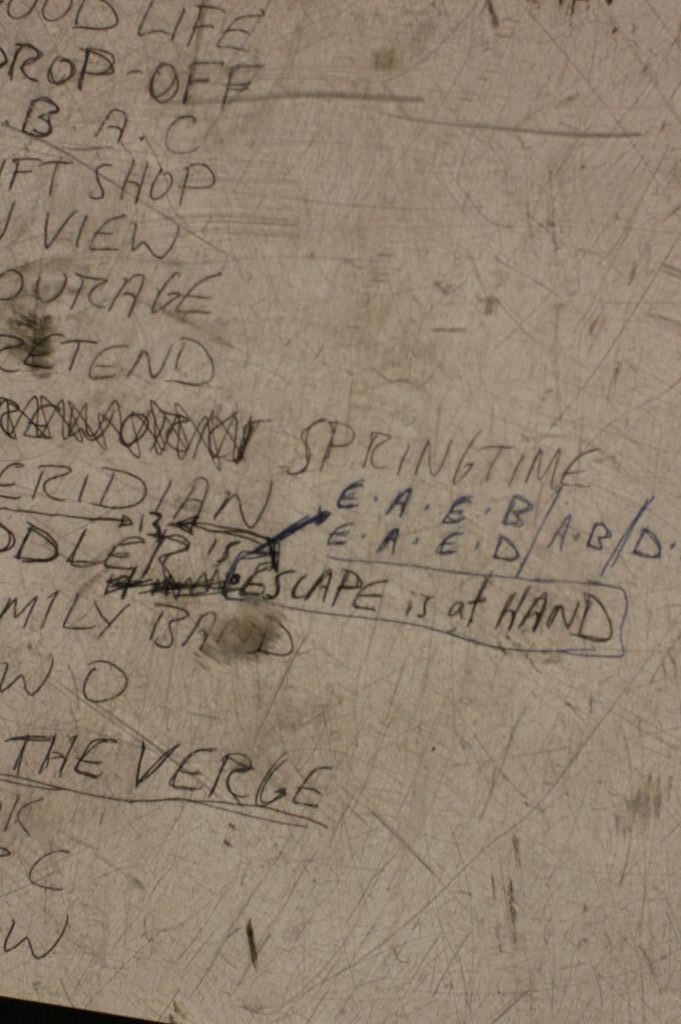 OOD LIFE
DROP-OFF
.B.A.C
IFT SHOP
VIEW
OURAGE
RETEND
SPRINGTIME
ERIDIAN
E.A.E.B/A.B/D.
E.A.E.D
DDLER is
ESCAPE is at HAND
MILY BAND
WO
THE VERGE
K
C
W